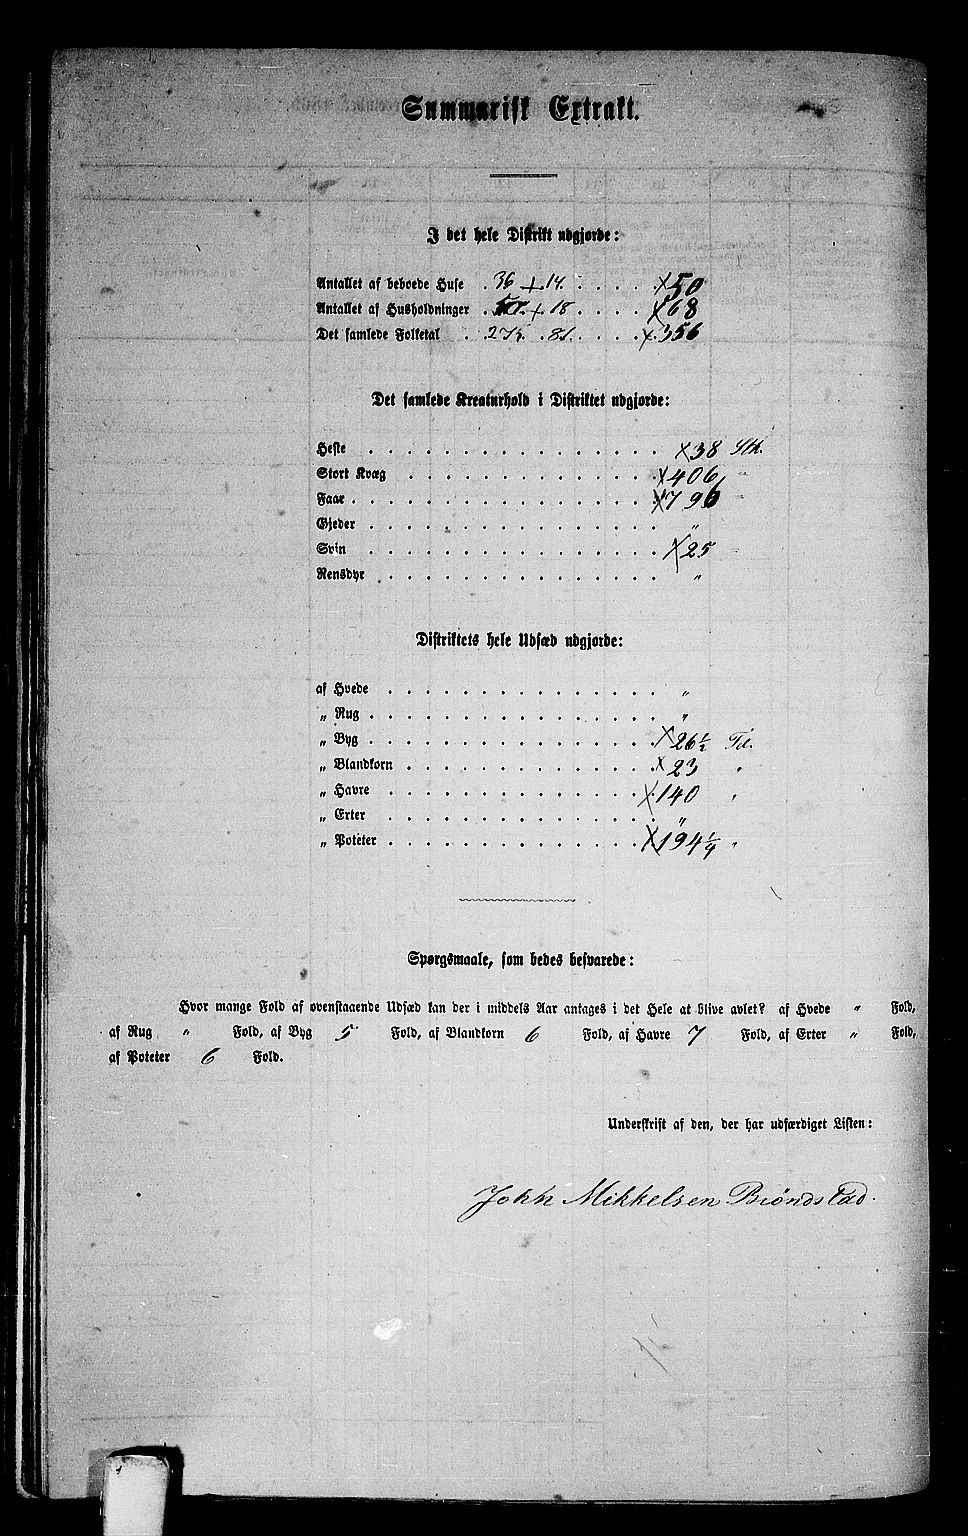 Summarisk Extrakt.
I det hele Distrikt udgjorde:
Antallet af beboede Huse . 36 + 14. . . . . . × 50
Antallet af Husholdninger . 50. + 18 . . . . . × 68
Det samlede Folketal . . 275. . 81. . . . . ×. 356
Det samlede Kreaturhold i Distriktet udgjorde:
Heste . . . . . . . . . . . . . . . . . . × 38 Stk.
Stort Kvæg . . . . . . . . . . . . . . . . × 406 "
Faar . . . . . . . . . . . . . . . . . . . × 796 "
Gjeder . . . . . . . . . . . . . . . . . . "
Svin . . . . . . . . . . . . . . . . . . × 25 "
Rensdyr . . . . . . . . . . . . . . . . . "
Distriktets hele Udsæd udgjorde:
af Hvede . . . . . . . . . . . . . . . . . "
„ Rug . . . . . . . . . . . . . . . . . . "
„ Byg . . . . . . . . . . . . . . . . . . × 26½ Td.
„ Blandkorn . . . . . . . . . . . . . . . . × 23 "
„ Havre . . . . . . . . . . . . . . . . . . × 140 "
„ Erter . . . . . . . . . . . . . . . . . "
„ Poteter . . . . . . . . . . . . . . . . . × 194¼ "
Spørgsmaale, som bedes besvarede:
Hvor mange Fold af ovenstaaende Udsæd kan der i middels Aar antages i det Hele at blive avlet? af Hvede " Fold,
af Rug " Fold, af Byg 5 Fold, af Blandkorn 6 Fold, af Havre 7 Fold, af Erter " Fold,
af Poteter 6 Fold.
Underskrift af den, der har udfærdiget Listen:
John Mikkelsen Brøndstad.